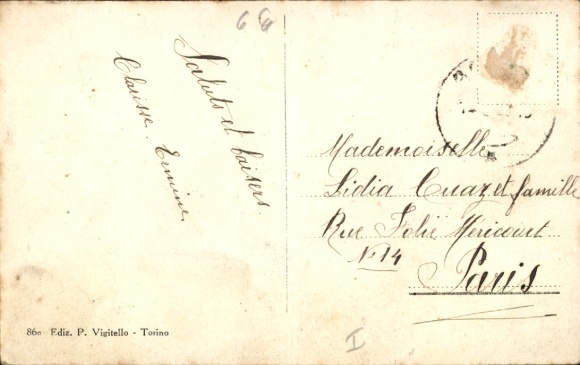 6 G
Saluts et baisers
Clarisse Ermine
Mademoiselle
Lidia Cuaz et famille
Rue Folie Méricourt
N. 14
Paris
86e Ediz. P. Vigitello - Torino
I